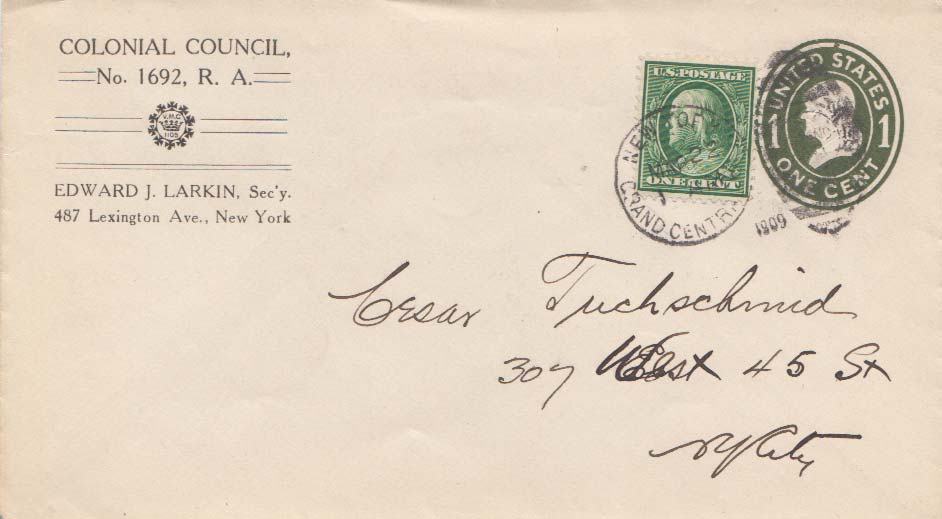 COLONIAL COUNCIL,
No. 1692, R. A.
V.M.C
1105
EDWARD J. LARKIN, Sec'y.
487 Lexington Ave., New York
U.S. POSTAGE
ONE CENT
NEW YORK
GRAND CENTRAL
1909
UNITED STATES
1 1
ONE CENT
Cesar Tuchschmid
307 West 45 St
NY City